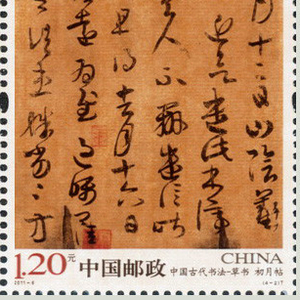 月十二日山陰羲
近欲遣此書停
行無人不辦遣信昨
且得去月十六日
遠為慰過囑卿
諸患殊劣殊劣方
CHINA
1.20元 中国邮政 中国古代书法—草书 初月帖
2011-6 (4-2)T